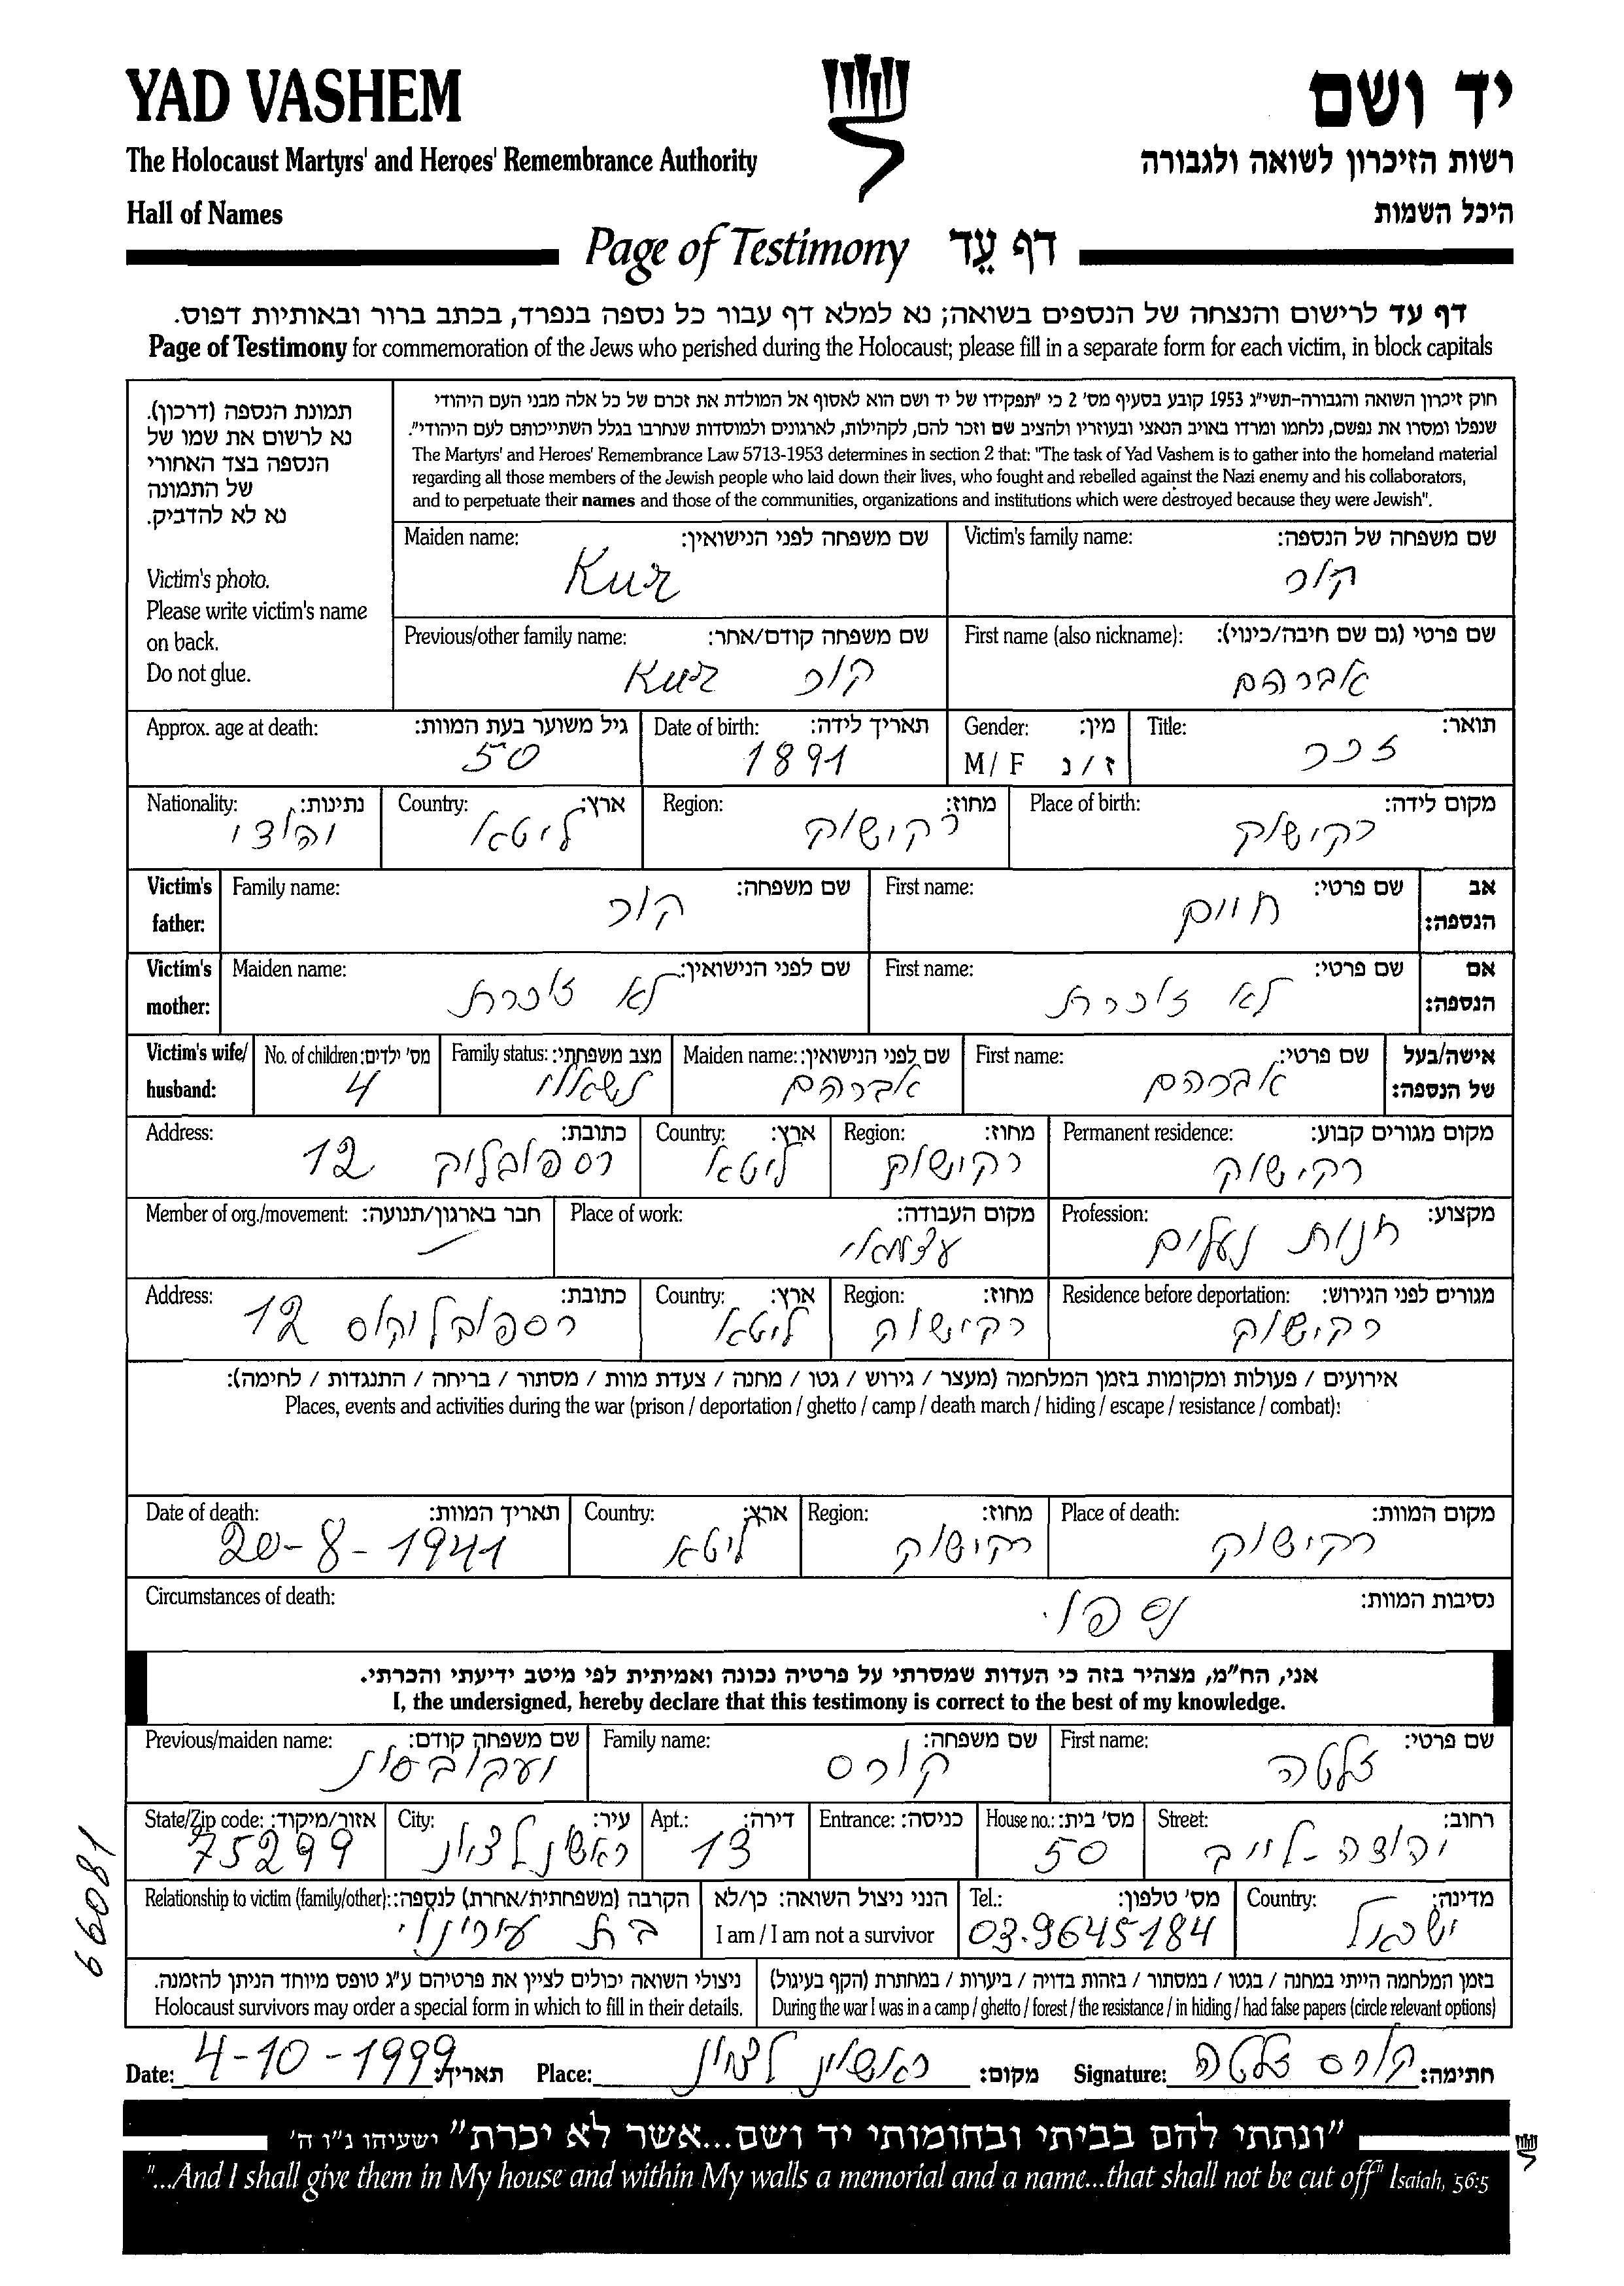 YAD VASHEM
יד ושם
The Holocaust Martyrs' and Heroes' Remembrance Authority
רשות הזיכרון לשואה ולגבורה
Hall of Names
היכל השמות
Page of Testimony דף עֵד
דף עד לרישום והנצחה של הנספים בשואה; נא למלא דף עבור כל נספה בנפרד, בכתב ברור ובאותיות דפוס.
Page of Testimony for commemoration of the Jews who perished during the Holocaust; please fill in a separate form for each victim, in block capitals
תמונת הנספה (דרכון).
נא לרשום את שמו של
הנספה בצד האחורי
של התמונה
נא לא להדביק.
Victim's photo.
Please write victim's name
on back.
Do not glue.
חוק זיכרון השואה והגבורה-תשי"ג 1953 קובע בסעיף מס' 2 כי "תפקידו של יד ושם הוא לאסוף אל המולדת את זכרם של כל אלה מבני העם היהודי
שנפלו ומסרו את נפשם, נלחמו ומרדו באויב הנאצי ובעוזריו ולהציב שם וזכר להם, לקהילות, לארגונים ולמוסדות שנחרבו בגלל השתייכותם לעם היהודי".
The Martyrs' and Heroes' Remembrance Law 5713-1953 determines in section 2 that: "The task of Yad Vashem is to gather into the homeland material
regarding all those members of the Jewish people who laid down their lives, who fought and rebelled against the Nazi enemy and his collaborators,
and to perpetuate their names and those of the communities, organizations and institutions which were destroyed because they were Jewish".
Victim's family name: שם משפחה של הנספה:
קור
Maiden name: שם משפחה לפני הנישואין:
Kur
First name (also nickname): שם פרטי (גם שם חיבה/כינוי):
אברהם
Previous/other family name: שם משפחה קודם/אחר:
קור Kur
Title: תואר:
זכר
Gender: מין:
M / F ז / נ
Date of birth: תאריך לידה:
1891
Approx. age at death: גיל משוער בעת המוות:
50
Place of birth: מקום לידה:
רקישוק
Region: מחוז:
רקישוק
Country: ארץ:
ליטא
Nationality: נתינות:
יהודי
Victim's father: אב הנספה:
First name: שם פרטי:
חיים
Family name: שם משפחה:
קור
Victim's mother: אם הנספה:
First name: שם פרטי:
לא זוכרת
Maiden name: שם לפני הנישואין:
לא זוכרת
Victim's wife/ husband: אישה/בעל של הנספה:
First name: שם פרטי:
אברהם
Maiden name: שם לפני הנישואין:
אברהם
Family status: מצב משפחתי:
נשאוי
No. of children: מס' ילדים:
4
Permanent residence: מקום מגורים קבוע:
רקישוק
Region: מחוז:
רקישוק
Country: ארץ:
ליטא
Address: כתובת:
רספובליק 12
Profession: מקצוע:
חנות נעלים
Place of work: מקום העבודה:
עצמאי
Member of org./movement: חבר בארגון/תנועה:
Residence before deportation: מגורים לפני הגירוש:
רקישוק
Region: מחוז:
רקישוק
Country: ארץ:
ליטא
Address: כתובת:
רספובליקוס 12
אירועים / פעולות ומקומות בזמן המלחמה (מעצר / גירוש / גטו / מחנה / צעדת מוות / מסתור / בריחה / התנגדות / לחימה):
Places, events and activities during the war (prison / deportation / ghetto / camp / death march / hiding / escape / resistance / combat):
Place of death: מקום המוות:
רקישוק
Region: מחוז:
רקישוק
Country: ארץ:
ליטא
Date of death: תאריך המוות:
20-8-1941
Circumstances of death: נסיבות המוות:
נספו.
אני, הח"מ, מצהיר בזה כי העדות שמסרתי על פרטיה נכונה ואמיתית לפי מיטב ידיעתי והכרתי.
I, the undersigned, hereby declare that this testimony is correct to the best of my knowledge.
First name: שם פרטי:
זלטה
Family name: שם משפחה:
קורס
Previous/maiden name: שם משפחה קודם:
Street: רחוב:
יהודה-לייב
House no.: מס' בית:
50
Entrance: כניסה:
Apt.: דירה:
13
City: עיר:
ראשון לציון
State/Zip code: אזור/מיקוד:
75299
Country: מדינה:
ישראל
Tel.: מס' טלפון:
03.9645184
הנני ניצול השואה: כן/לא
I am / I am not a survivor
Relationship to victim (family/other): הקרבה (משפחתית/אחרת) לנספה:
בת
בזמן המלחמה הייתי במחנה / בגטו / במסתור / בזהות בדויה / ביערות / במחתרת (הקף בעיגול)
During the war I was in a camp / ghetto / forest / the resistance / in hiding / had false papers (circle relevant options)
ניצולי השואה יכולים לציין את פרטיהם ע"ג טופס מיוחד הניתן להזמנה.
Holocaust survivors may order a special form in which to fill in their details.
66081
Signature: קורס זלטה חתימה:
Place: ראשון לציון מקום:
Date: 4-10-1999 תאריך:
"ונתתי להם בביתי ובחומותי יד ושם...אשר לא יכרת" ישעיהו נ"ו ה'
"...And I shall give them in My house and within My walls a memorial and a name...that shall not be cut off" Isaiah, 56:5